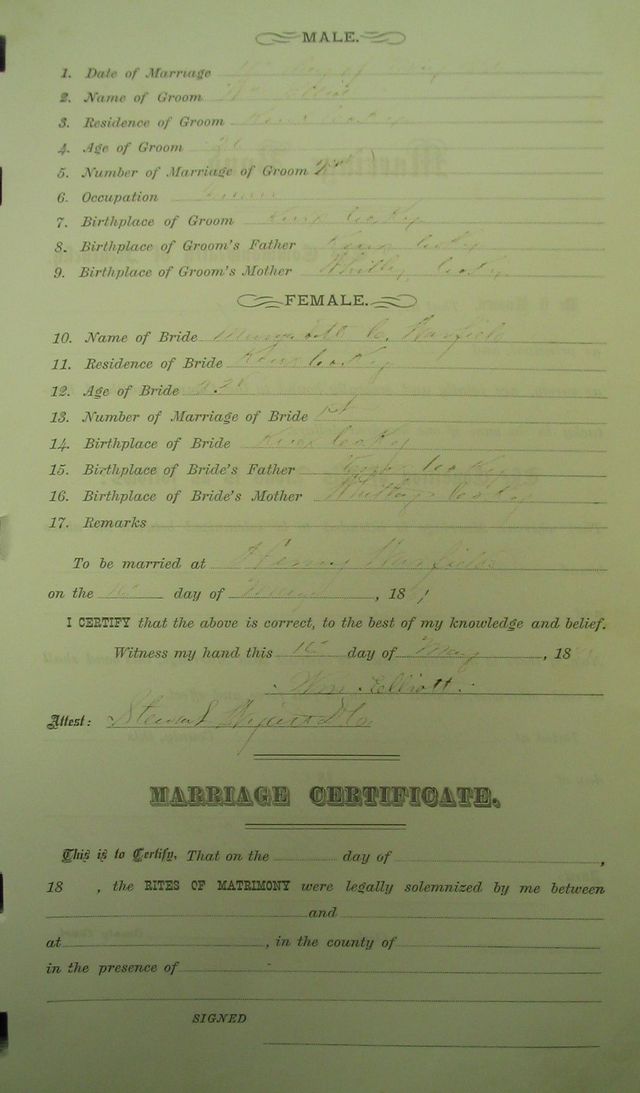 MALE.
1. Date of Marriage day of
2. Name of Groom Wm Elliott
3. Residence of Groom Knox Co Ky
4. Age of Groom
5. Number of Marriage of Groom 2nd
6. Occupation
7. Birthplace of Groom Knox Co Ky
8. Birthplace of Groom's Father Knox Co Ky
9. Birthplace of Groom's Mother Whitley Co Ky
FEMALE.
10. Name of Bride C. Warfield
11. Residence of Bride Knox Co Ky
12. Age of Bride
13. Number of Marriage of Bride 1st
14. Birthplace of Bride Knox Co Ky
15. Birthplace of Bride's Father Knox Co Ky
16. Birthplace of Bride's Mother Whitley Co Ky
17. Remarks
To be married at Henry Warfields
on the day of May , 18
I CERTIFY that the above is correct, to the best of my knowledge and belief.
Witness my hand this 16 day of May , 18
Wm. Elliott
Attest: Stewart
MARRIAGE CERTIFICATE.
This is to Certify, That on the day of ,
18 , the RITES OF MATRIMONY were legally solemnized by me between
and
at , in the county of
in the presence of
SIGNED